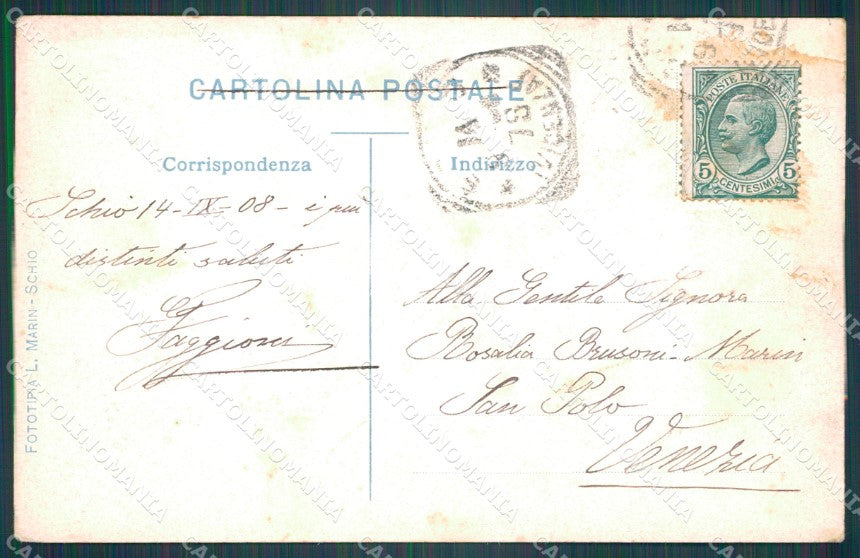 CARTOLINA POSTALE
Corrispondenza
Indirizzo
POSTE ITALIANE
5 5
CENTESIMI
Schio 14-IX-08 - i più
distinti saluti
Faggioni
Alla Gentile Signora
Rosalia Brusoni-Marin
San Polo
Venezia
FOTOTIPIA L. MARIN - SCHIO
CARTOLINOMANIA